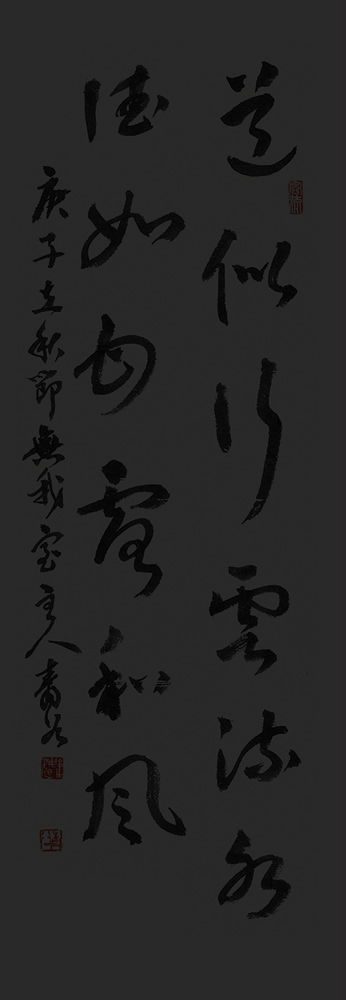 道似行雲流水
德如甘露和風
庚子立秋節無我室主人